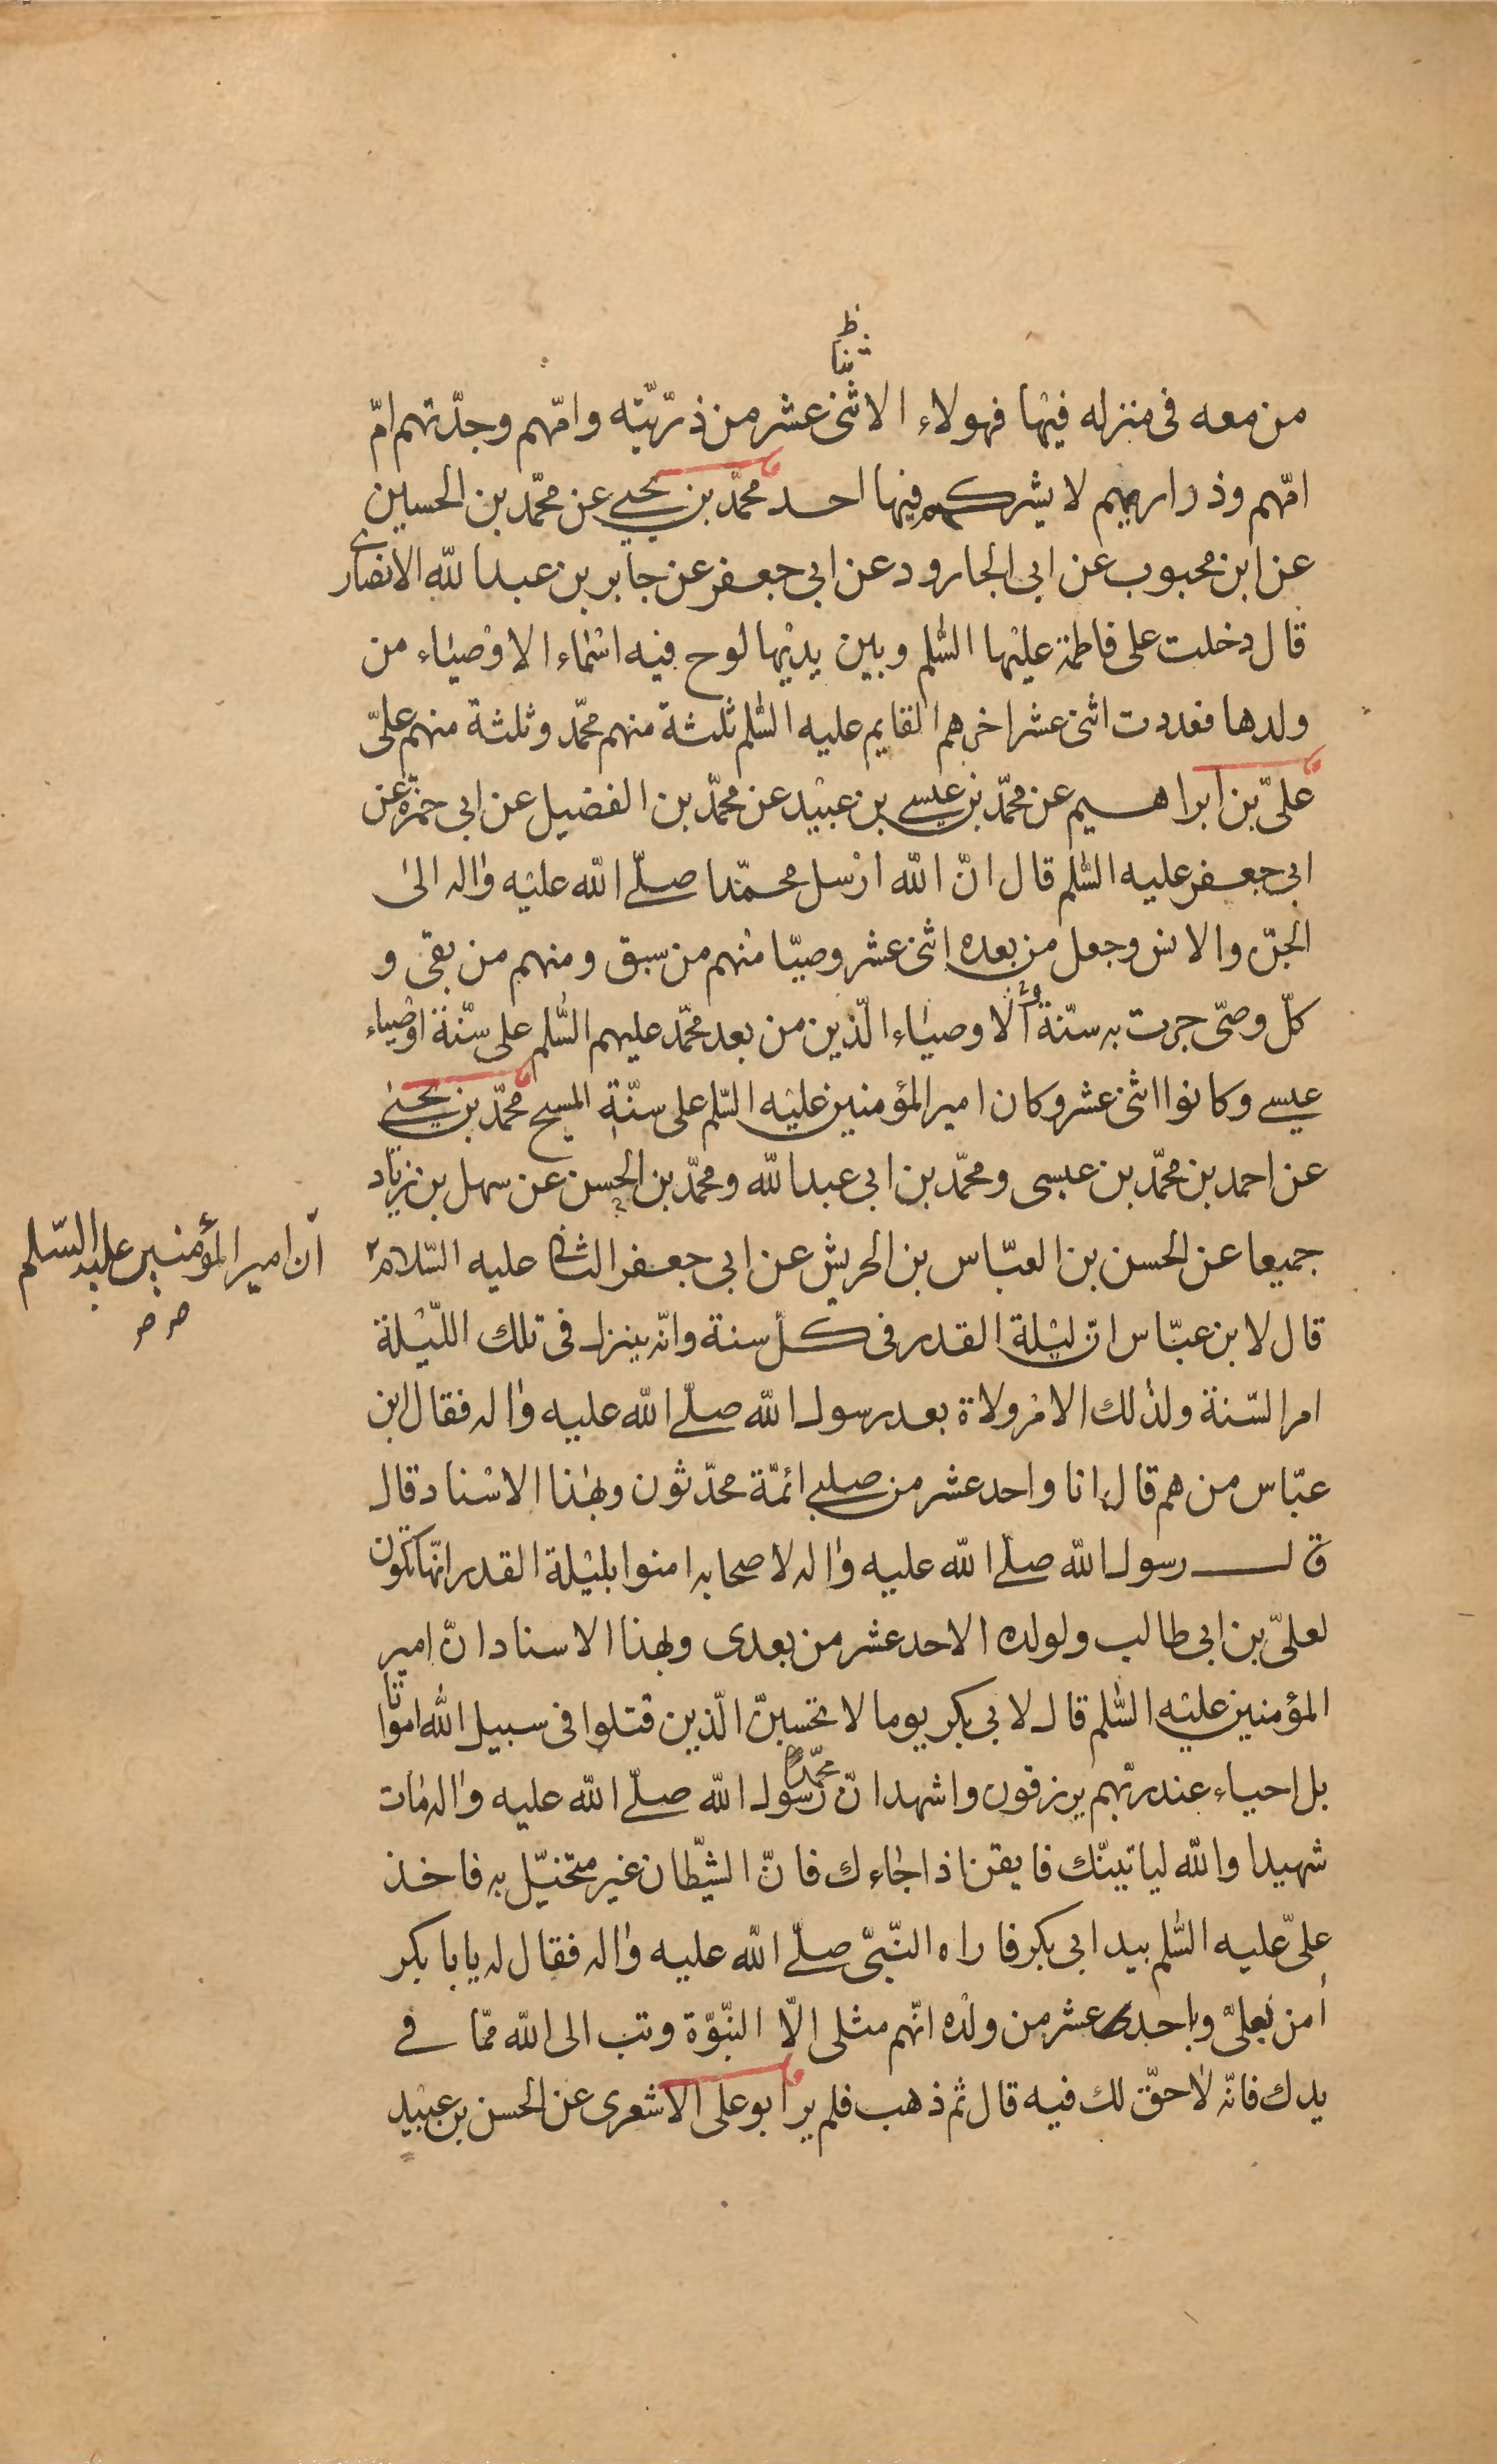 ثنا ظ
من معه فى منزله فيها فهولاء الاثنى عشر من ذرّيّته وامّهم وجدّتهم امّ
امّهم وذراريهم لا يشركهم فيها احد محمّد بن يحيى عن محمّد بن الحسين
عن ابن محبوب عن ابى الجارود عن ابى جعفر عن جابر بن عبد الله الانصارى
قال دخلت على فاطمة عليها السّلم وبين يديها لوح فيه اسماء الاوصياء من
ولدها فعددت اثنى عشر اخرهم القايم عليه السّلم ثلثة منهم محمّد وثلثة منهم علىّ
علىّ بن ابراهيم عن محمّد بن عيسى بن عبيد عن محمّد بن الفضيل عن ابى حمزة عن
ابى جعفر عليه السّلم قال انّ الله ارسل محمّدا صلّى الله عليه واله الى
الجنّ والانس وجعل من بعده اثنى عشر وصيّا منهم من سبق ومنهم من بقى و
كلّ وصىّ جرت به سنّة والاوصياء الّذين من بعد محمّد عليهم السّلم على سنّة اوصياء
عيسى وكانوا اثنى عشر وكان امير المؤمنين عليه السّلم على سنّة المسيح محمّد بن يحيى
عن احمد بن محمّد بن عيسى ومحمّد بن ابى عبد الله ومحمّد بن الحسن عن سهل بن زياد
جميعا عن الحسن بن العبّاس بن الحريش عن ابى جعفر الثانى عليه السّلام
انّ امير المؤمنين عليه السّلم
صح
قال لابن عبّاس انّ ليلة القدر فى كلّ سنة وانّه ينزل فى تلك اللّيلة
امر السّنة ولذلك الامر ولاة بعد رسول الله صلّى الله عليه واله فقال ابن
عبّاس من هم قال انا واحد عشر من صلبى ائمّة محدّثون وبهذا الاسناد قال
قال رسول الله صلّى الله عليه واله لاصحابه امنوا بليلة القدر انّها تكون
لعلىّ بن ابى طالب ولولده الاحد عشر من بعدى وبهذا الاسناد انّ امير
المؤمنين عليه السّلم قال لابى بكر يوما لا تحسبنّ الّذين قتلوا فى سبيل الله امواتا
بل احياء عند ربّهم يرزقون واشهد انّ محمّدا رسول الله صلّى الله عليه واله مات
شهيدا والله لياتينّك فايقن اذا جاءك فانّ الشيّطان غير متخيّل به فاخذ
علىّ عليه السّلم بيد ابى بكر فاراه النّبىّ صلّى الله عليه واله فقال له يابا بكر
أمن بعلىّ وباحد عشر من ولده انّهم مثلى الّا النّبوّة وتب الى الله ممّا فى
يدك فانّه لا حقّ لك فيه قال ثم ذهب فلم ير ابو على الاشعرى عن الحسن بن عبيد